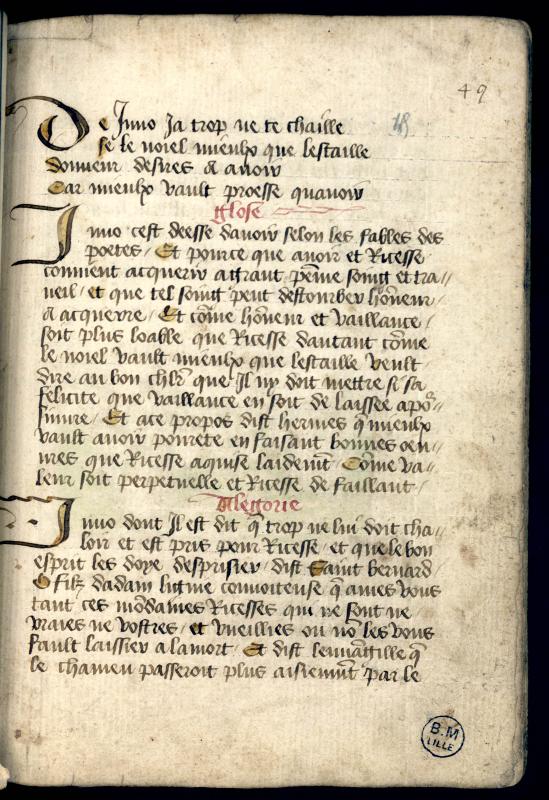 49
18
De Juno Ja trop ne te chaille
se le noiel mieulx que lestaille
donneur desires a auoir
Car mieulx vault proesse quauoir
Glose
Juno cest deesse dauoir selon les fables des
poetes / Et pource que auoir et Ricesse
conuient acquerir a grant peine soing et tra//
ueil / et que tel soing peut destourber hōneur /
a acquerre / Et cōme hōneur et vaillance /
soit plus loable que Ricesse dautant cōme
le noiel vault mieulx que lestaille veult
dire au bon chlr que Il ny doit mettre si sa
felicite que vaillance en soit de laissee a po~//
sinure / Et ace propos dist hermes q̄ mieulx
vault auoir pourete en faisant bonnes oeu//
ures que Ricesse aquise laidemt Cōme va//
leur soit perpetuelle et Ricesse de faillant /
Alegorie
Juno dont Il est dit q̄ trop ne lui doit cha//
loir et est pris pour Ricesse / et que le bon
esprit les doye desprisier / dist Saint bernard /
O filz dadam ligne conuoiteuse q̄ ames vous
tant ces mōdaines Ricesses qui ne sont ne
vraies ne vostres / et vueillies ou nō les vous
fault laissier a la mort / Et dist leuuāgille q̄
le chameu passeroit plus aisiemt par le
B.M
LILLE